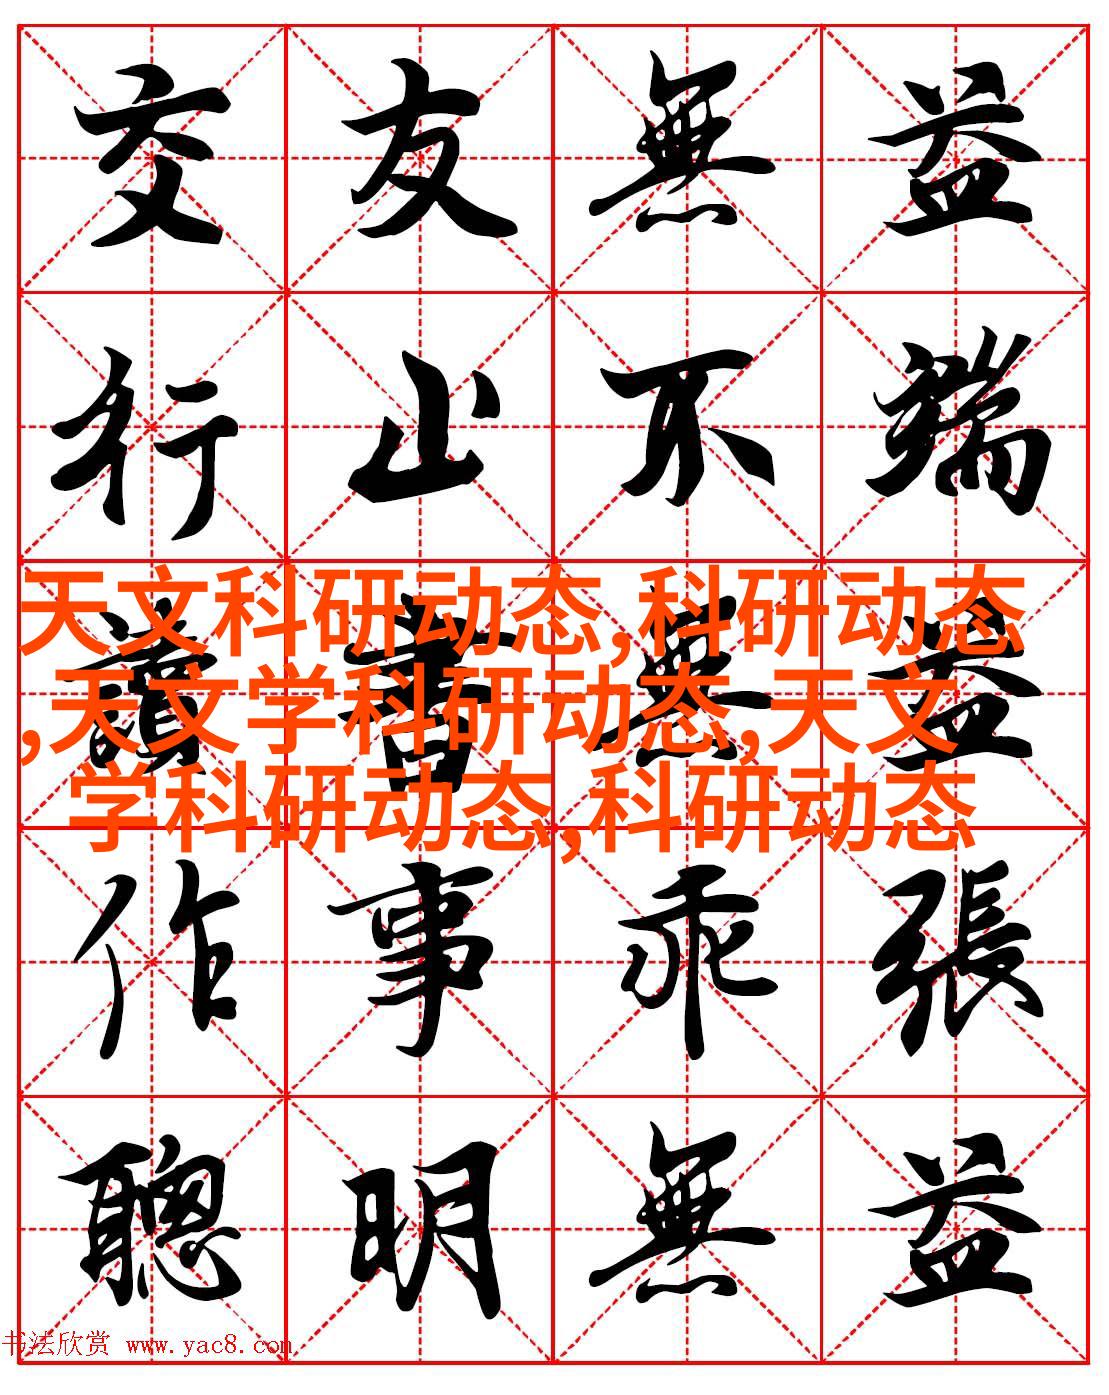 交友無益
行止不端
天文科研动态,科研动态
,天文学科研动态,天文
学科研动态,科研动态
讀書無益
作事乖張
聰明無益
书法欣赏 www.yac8.com